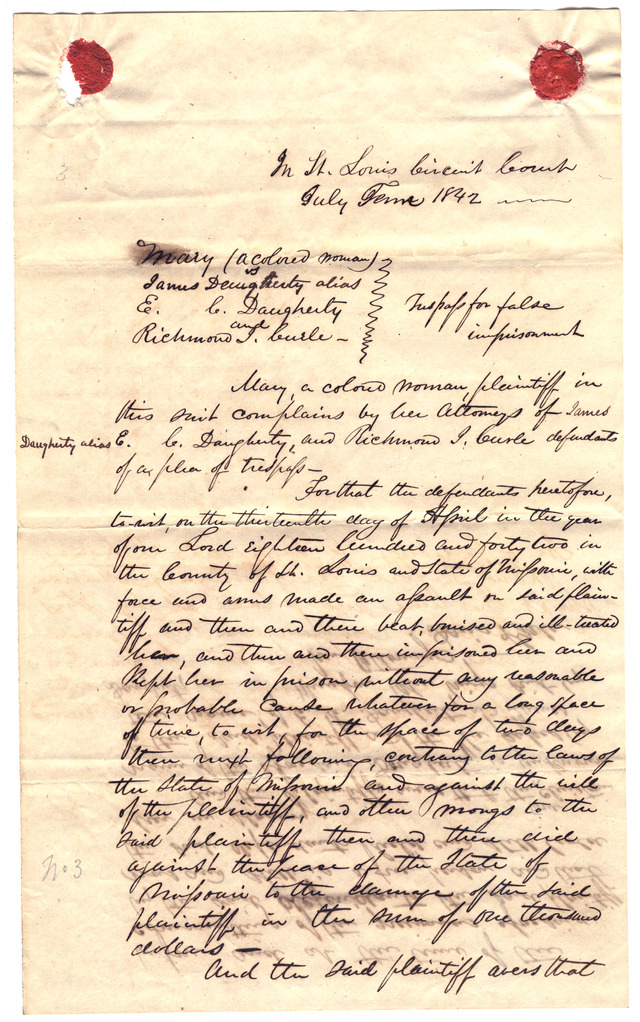 3
In St. Louis Circuit Court
July Term 1842
Mary (a colored woman)
vs
James Daugherty alias
E. C. Daugherty
and
Richmond J. Curle -
Trespass for false
imprisonment
Mary, a colored woman, plaintiff in
this suit complains by her Attorneys of James
Daugherty alias E. C. Daugherty, and Richmond J. Curle defendants
of a plea of trespass -
For that the defendants heretofore,
to-wit, on the thirteenth day of April in the year
of our Lord Eighteen hundred and forty two in
the County of St. Louis and State of Missouri, with
force and arms made an assault on said plain-
tiff and then and there beat, bruised and ill-treated
her, and then and there imprisoned her and
Kept her in prison without any reasonable
or probable cause whatever for a long space
of time, to wit, for the space of two days
then next following, contrary to the laws of
the State of Missouri and against the will
of the plaintiff, and other wrongs to the
said plaintiff then and there did
against the peace of the State of
Missouri to the damage of the said
plaintiff in the sum of one thousand
dollars -
And the said plaintiff avers that
No 3